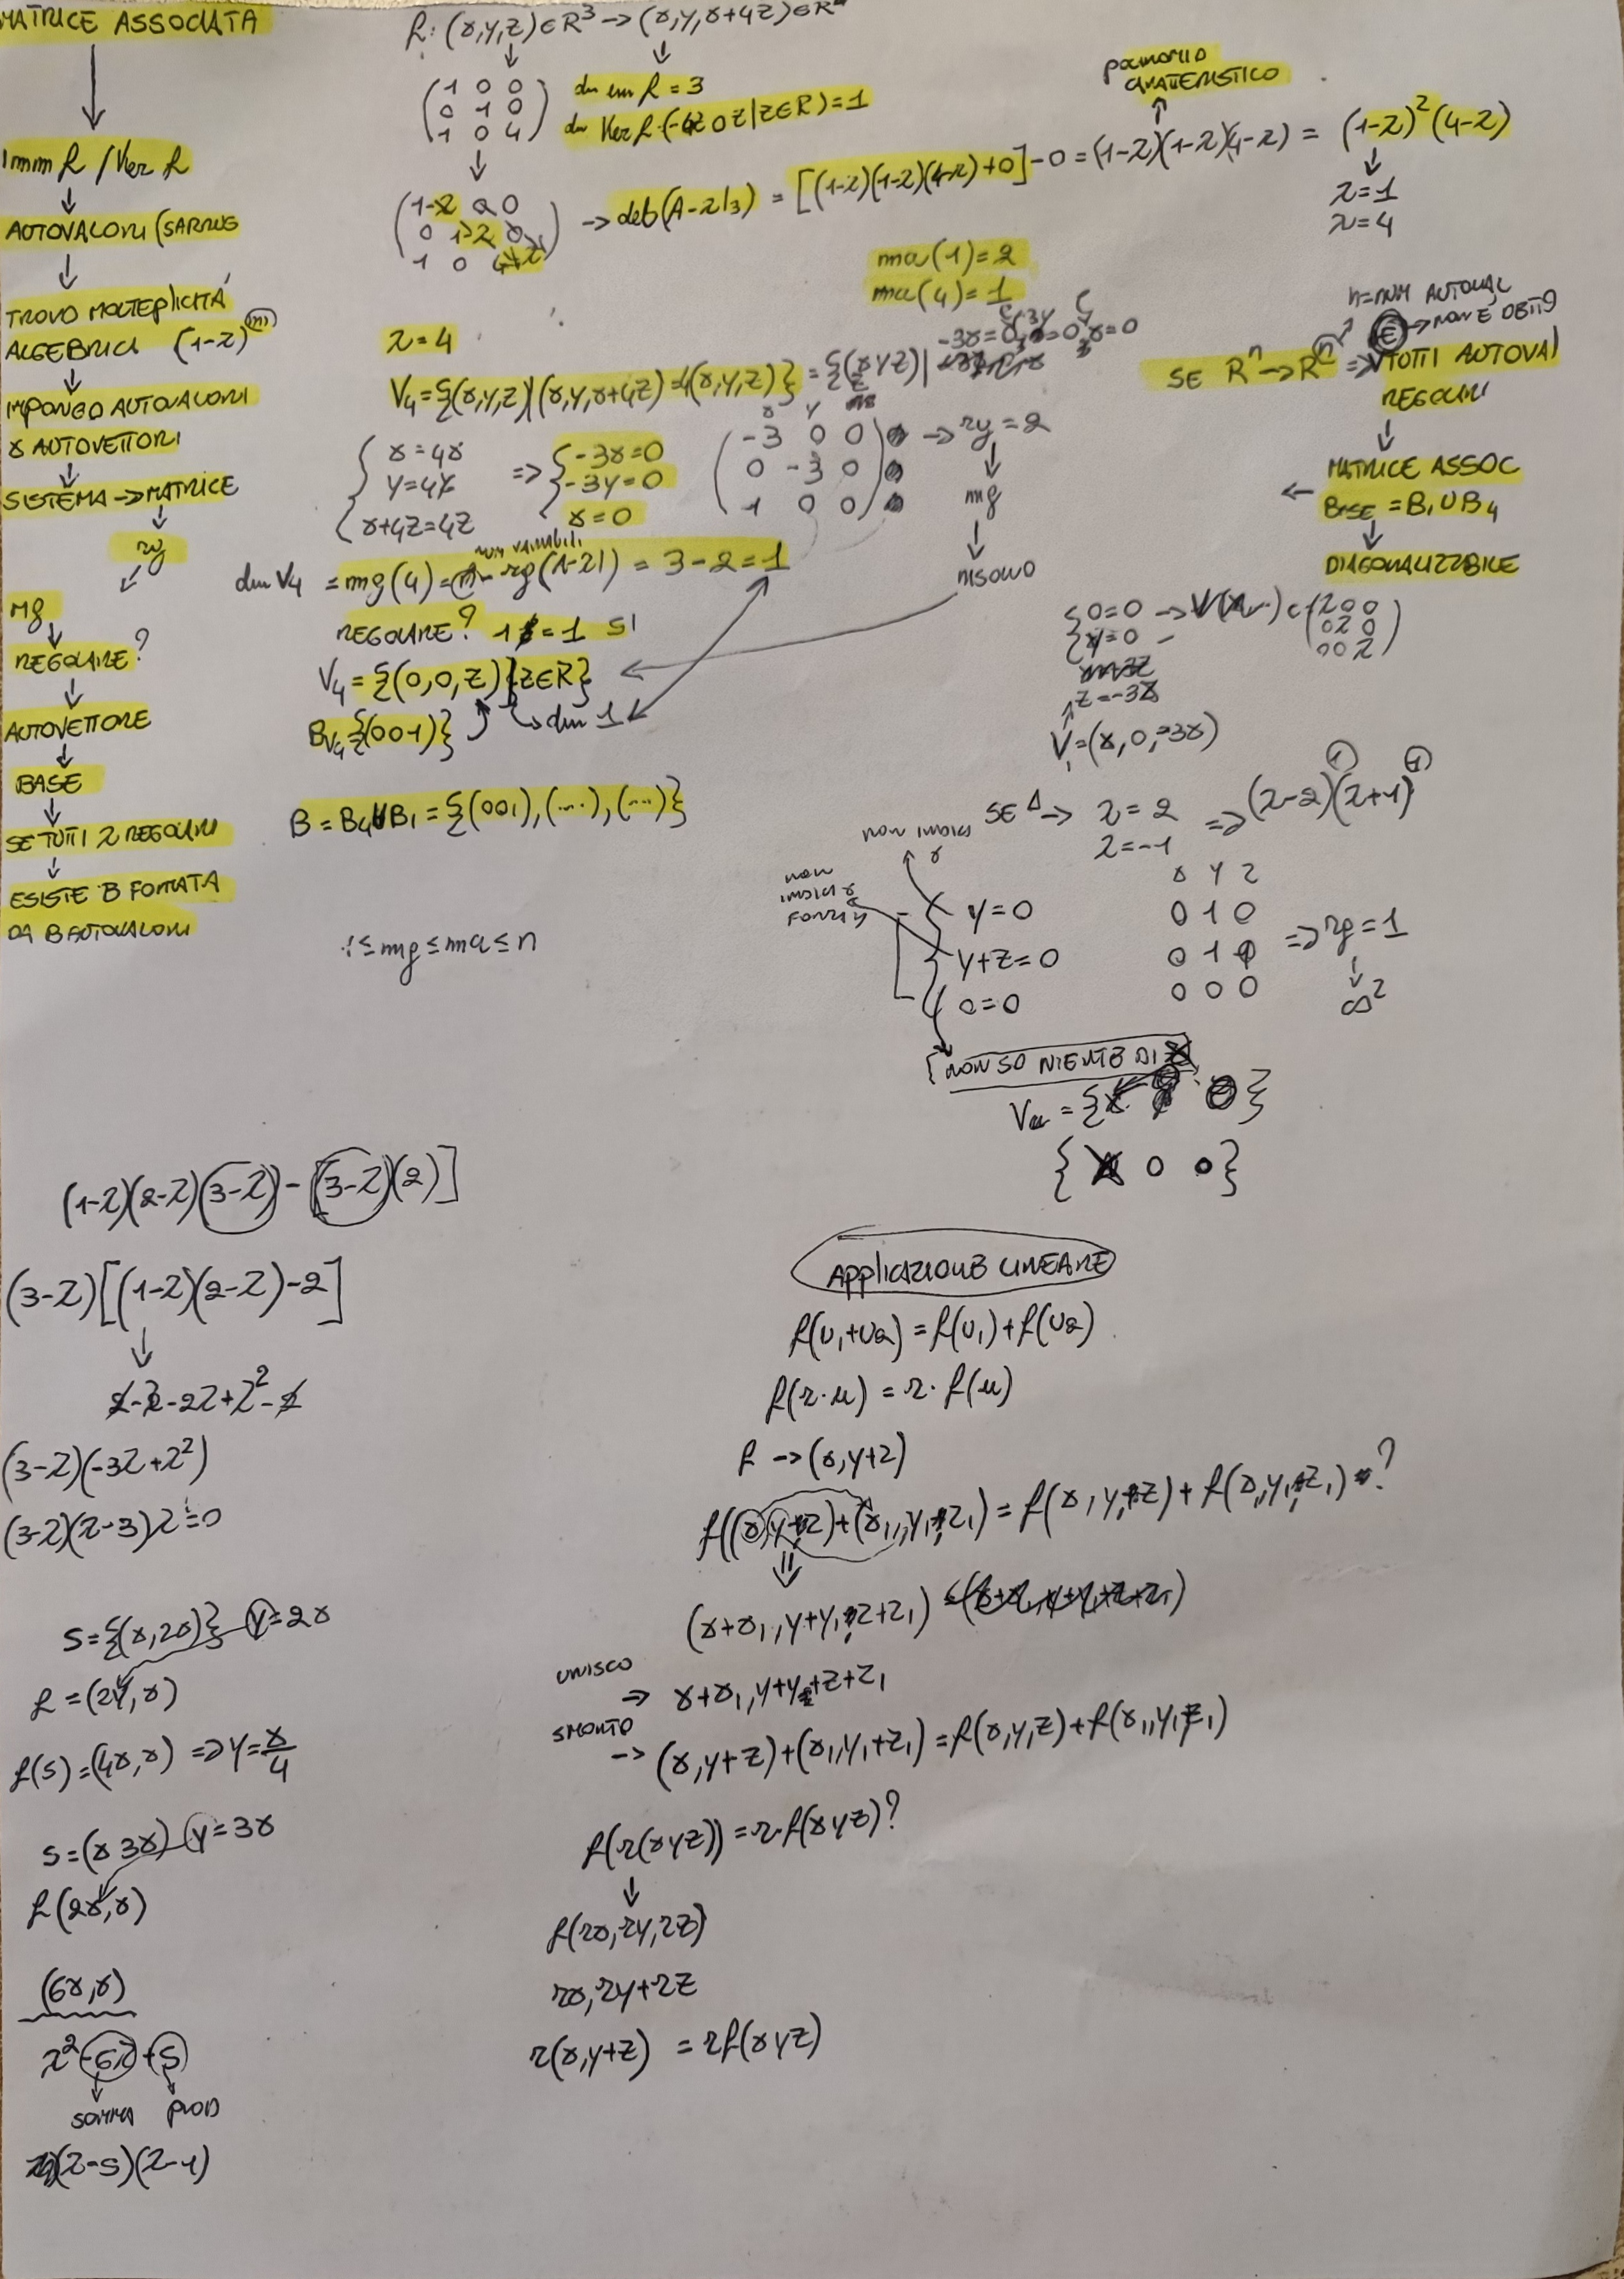 MATRICE ASSOCIATA
↓
Imm f / Ker f
↓
AUTOVALORI (SARRUS
↓
TROVO MOLTEPLICITÀ
ALGEBRICA (1-λ)^(m)
↓
IMPONGO AUTOVALORI
X AUTOVETTORI
↓
SISTEMA → MATRICE
↓
rg
↓
mg
↓
REGOLARE?
↓
AUTOVETTORE
↓
BASE
↓
SE TUTTI λ REGOLARI
↓
ESISTE B FORMATA
DA B AUTOVALORI
f: (x,y,z)∈R³ → (x,y,x+4z)∈R
(1 0 0
0 1 0
1 0 4)
dim imm f = 3
dim Ker f: (-4z 0 z | z∈R) = 1
(1-λ 0 0
0 1-λ 0
1 0 4-λ)
→ det(A-λI₃) = [(1-λ)(1-λ)(4-λ)+0]-0 = (1-λ)(1-λ)(4-λ) = (1-λ)²(4-λ)
POLINOMIO
CARATTERISTICO
λ=1
λ=4
ma(1)=2
ma(4)=1
λ=4
V₄={(x,y,z)|(x,y,x+4z)=4(x,y,z)} = {(x y z)|
{ x=4x
y=4y
x+4z=4z
⇒ { -3x=0
-3y=0
x=0
x y
(-3 0 0
0 -3 0
1 0 0)
→ rg=2
↓
mg
↓
RISOLVO
num variabili
dim V₄ = mg(4) = n - rg(A-λI) = 3-2=1
REGOLARE? 1 = 1 SI
V₄={(0,0,z)|z∈R}
↳ dim 1
B_V₄={(001)}
B=B₄∪B₁={(001),(...),(...)}
1≤mg≤ma≤n
n=NUM AUTOVAL
SE Rⁿ→Rⁿ ⇒ TUTTI AUTOVAL
€ → NON È OBBLIG
REGOLARI
↓
MATRICE ASSOC
← BASE = B₁∪B₄
↓
DIAGONALIZZBILE
{ 0=0
y=0
z=-3x
(λ 0 0
0 λ 0
0 0 λ)
V₁=(x,0,-3x)
SE Δ → λ=2
λ=-1
⇒ (λ-2)^(1)(λ+1)^(1)
non indica
x
non
indica x
{ y=0
y+z=0
0=0
x y z
0 1 0
0 1
0 0 0
⇒ rg=1
↓
∞²
NON SO NIENTE DI X
{ 0 0 }
(1-λ)(2-λ)(3-λ) - [(3-λ)(2)]
(3-λ)[(1-λ)(2-λ)-2]
↓
2-λ-2λ+λ²-2
(3-λ)(-3λ+λ²)
(3-λ)(λ-3)λ=0
S={(x,2x)} y=2x
f=(2y,x)
f(S)=(4x,x) ⇒ y=x/4
S=(x 3x) y=3x
f(2x,x)
(6x,x)
λ²-6λ+5
SOMMA PROD
(λ-5)(λ-1)
APPLICAZIONE LINEARE
f(u₁+u₂)=f(u₁)+f(u₂)
f(r·u)=r·f(u)
f → (x,y+z)
f((x,y,z)+(x₁,y₁,z₁)=f(x,y,z)+f(x₁,y₁,z₁)?
⇓
(x+x₁,y+y₁,z+z₁)
UNISCO
→ x+x₁,y+y₁+z+z₁
SMONTO
→ (x,y+z)+(x₁,y₁+z₁)=f(x,y,z)+f(x₁,y₁,z₁)
f(r(xyz))=r·f(xyz)?
↓
f(rx,ry,rz)
rx,ry+rz
r(x,y+z) = rf(xyz)